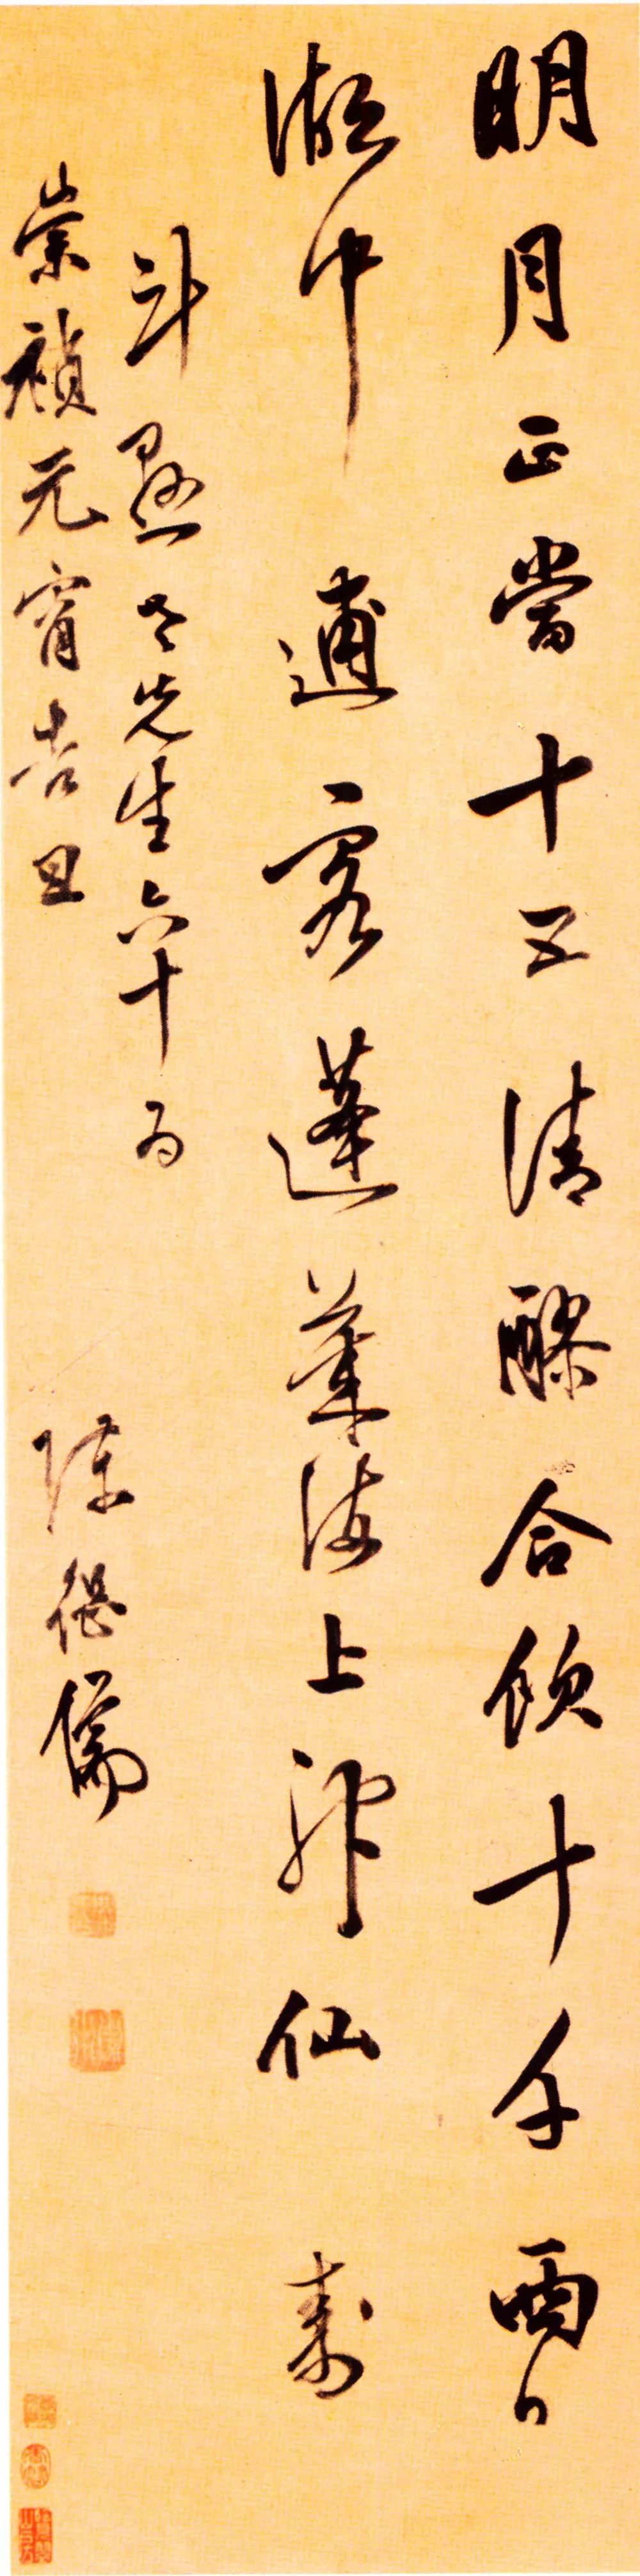 明月正當十五清醪合飲十千西
湖中逋客蓬萊海上神仙 壽
斗老先生六十
崇禎元宵吉旦
陳繼儒